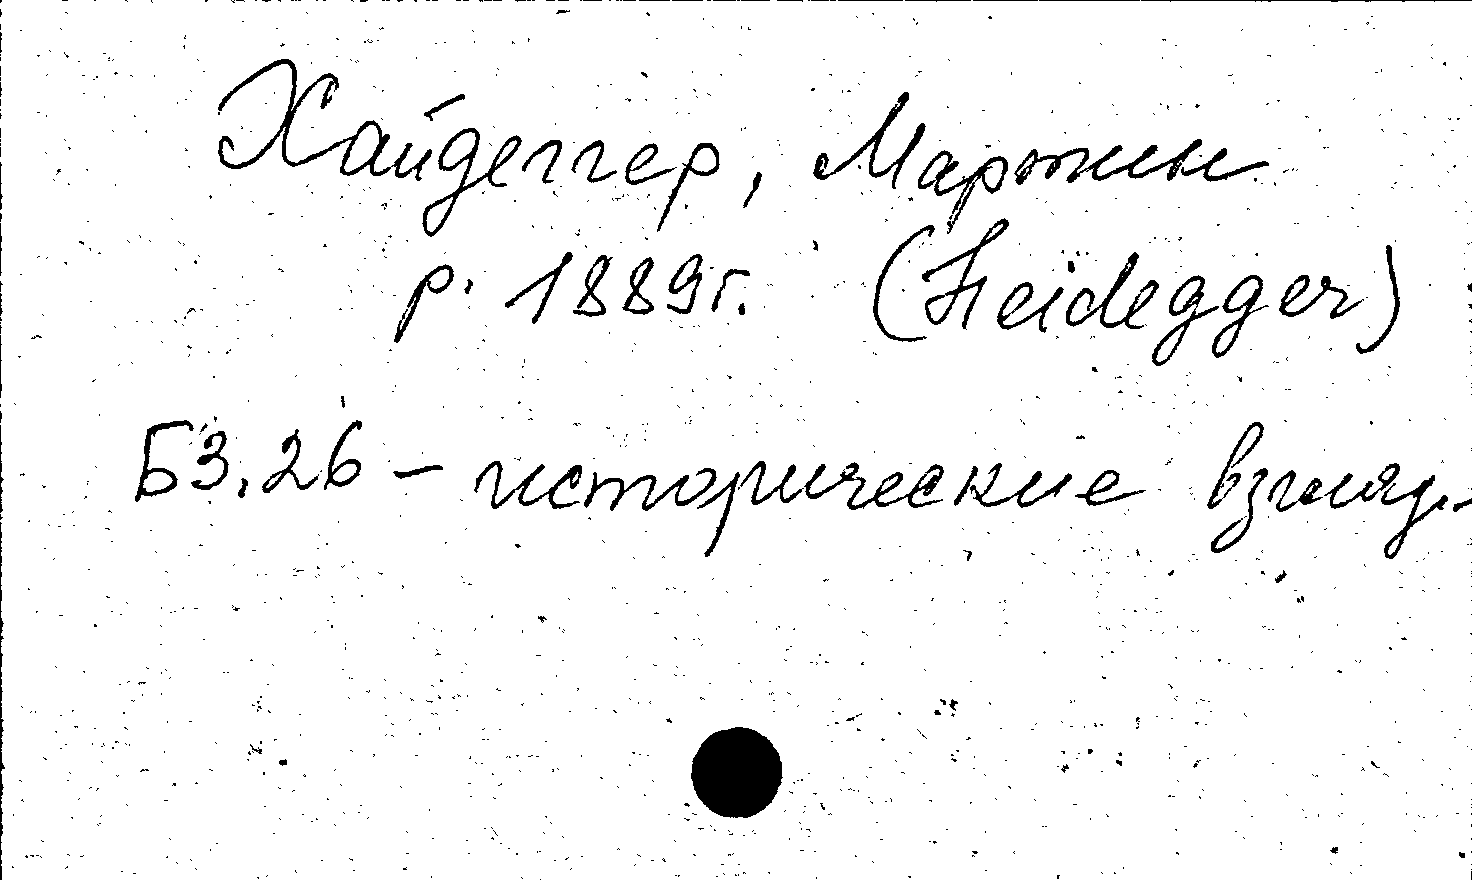 Хайдеггер, Мартин
р. 1889г. (Heidegger)
Б3.26 – исторические взгляд.